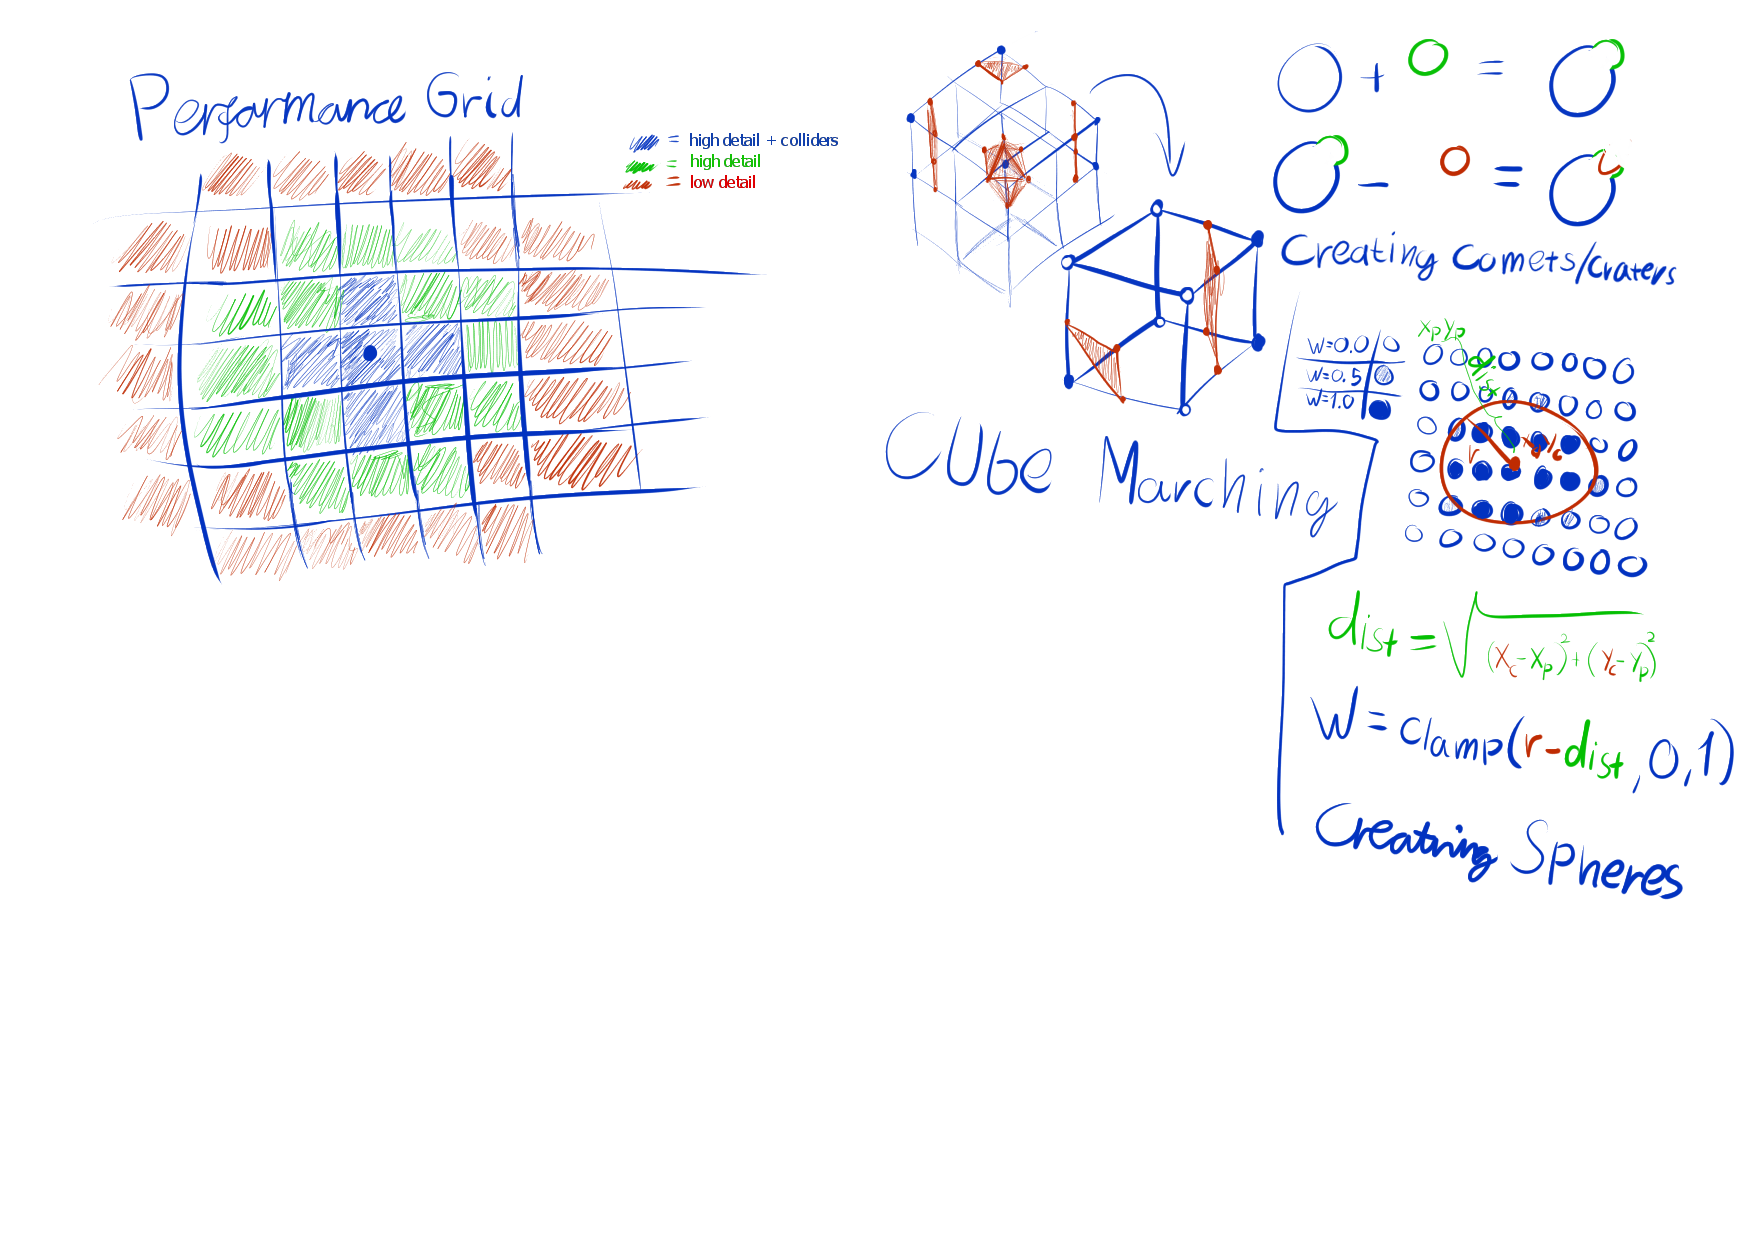 Performance Grid
= high detail + colliders
= high detail
= low detail
+ =
- =
Creating Comets/Craters
CUbe Marching
W=0.0
W=0.5
W=1.0
xp yp
dist
r
xc yc
dist = √(xc-xp)²+(yc-yp)²
W = clamp(r-dist, 0, 1)
Creating Spheres